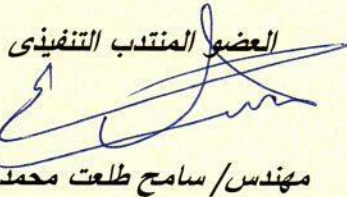 العضو المنتدب التنفيذى
مهندس/ سامح طلعت محمد